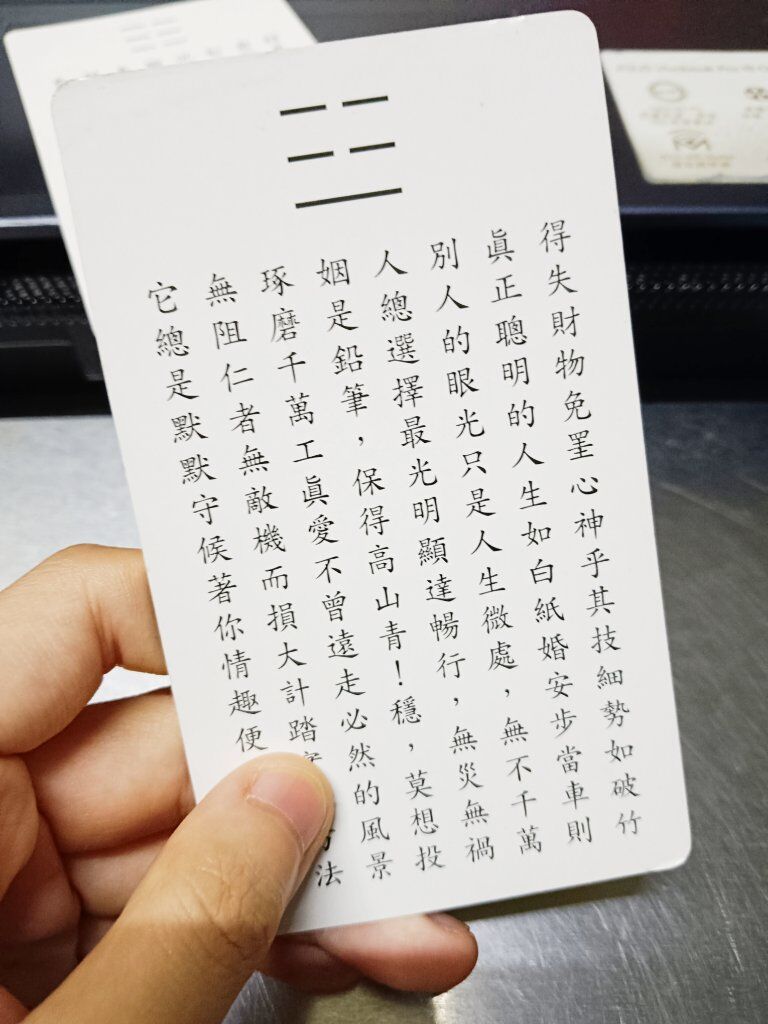 得失財物免罣心神乎其技細勢如破竹
眞正聰明的人生如白紙婚安步當車則
別人的眼光只是人生微處，無不千萬
人總選擇最光明顯達暢行，無災無禍
姻是鉛筆，保得高山青！穩，莫想投
琢磨千萬工眞愛不曾遠走必然的風景
無阻仁者無敵機而損大計踏法
它總是默默守候著你情趣便